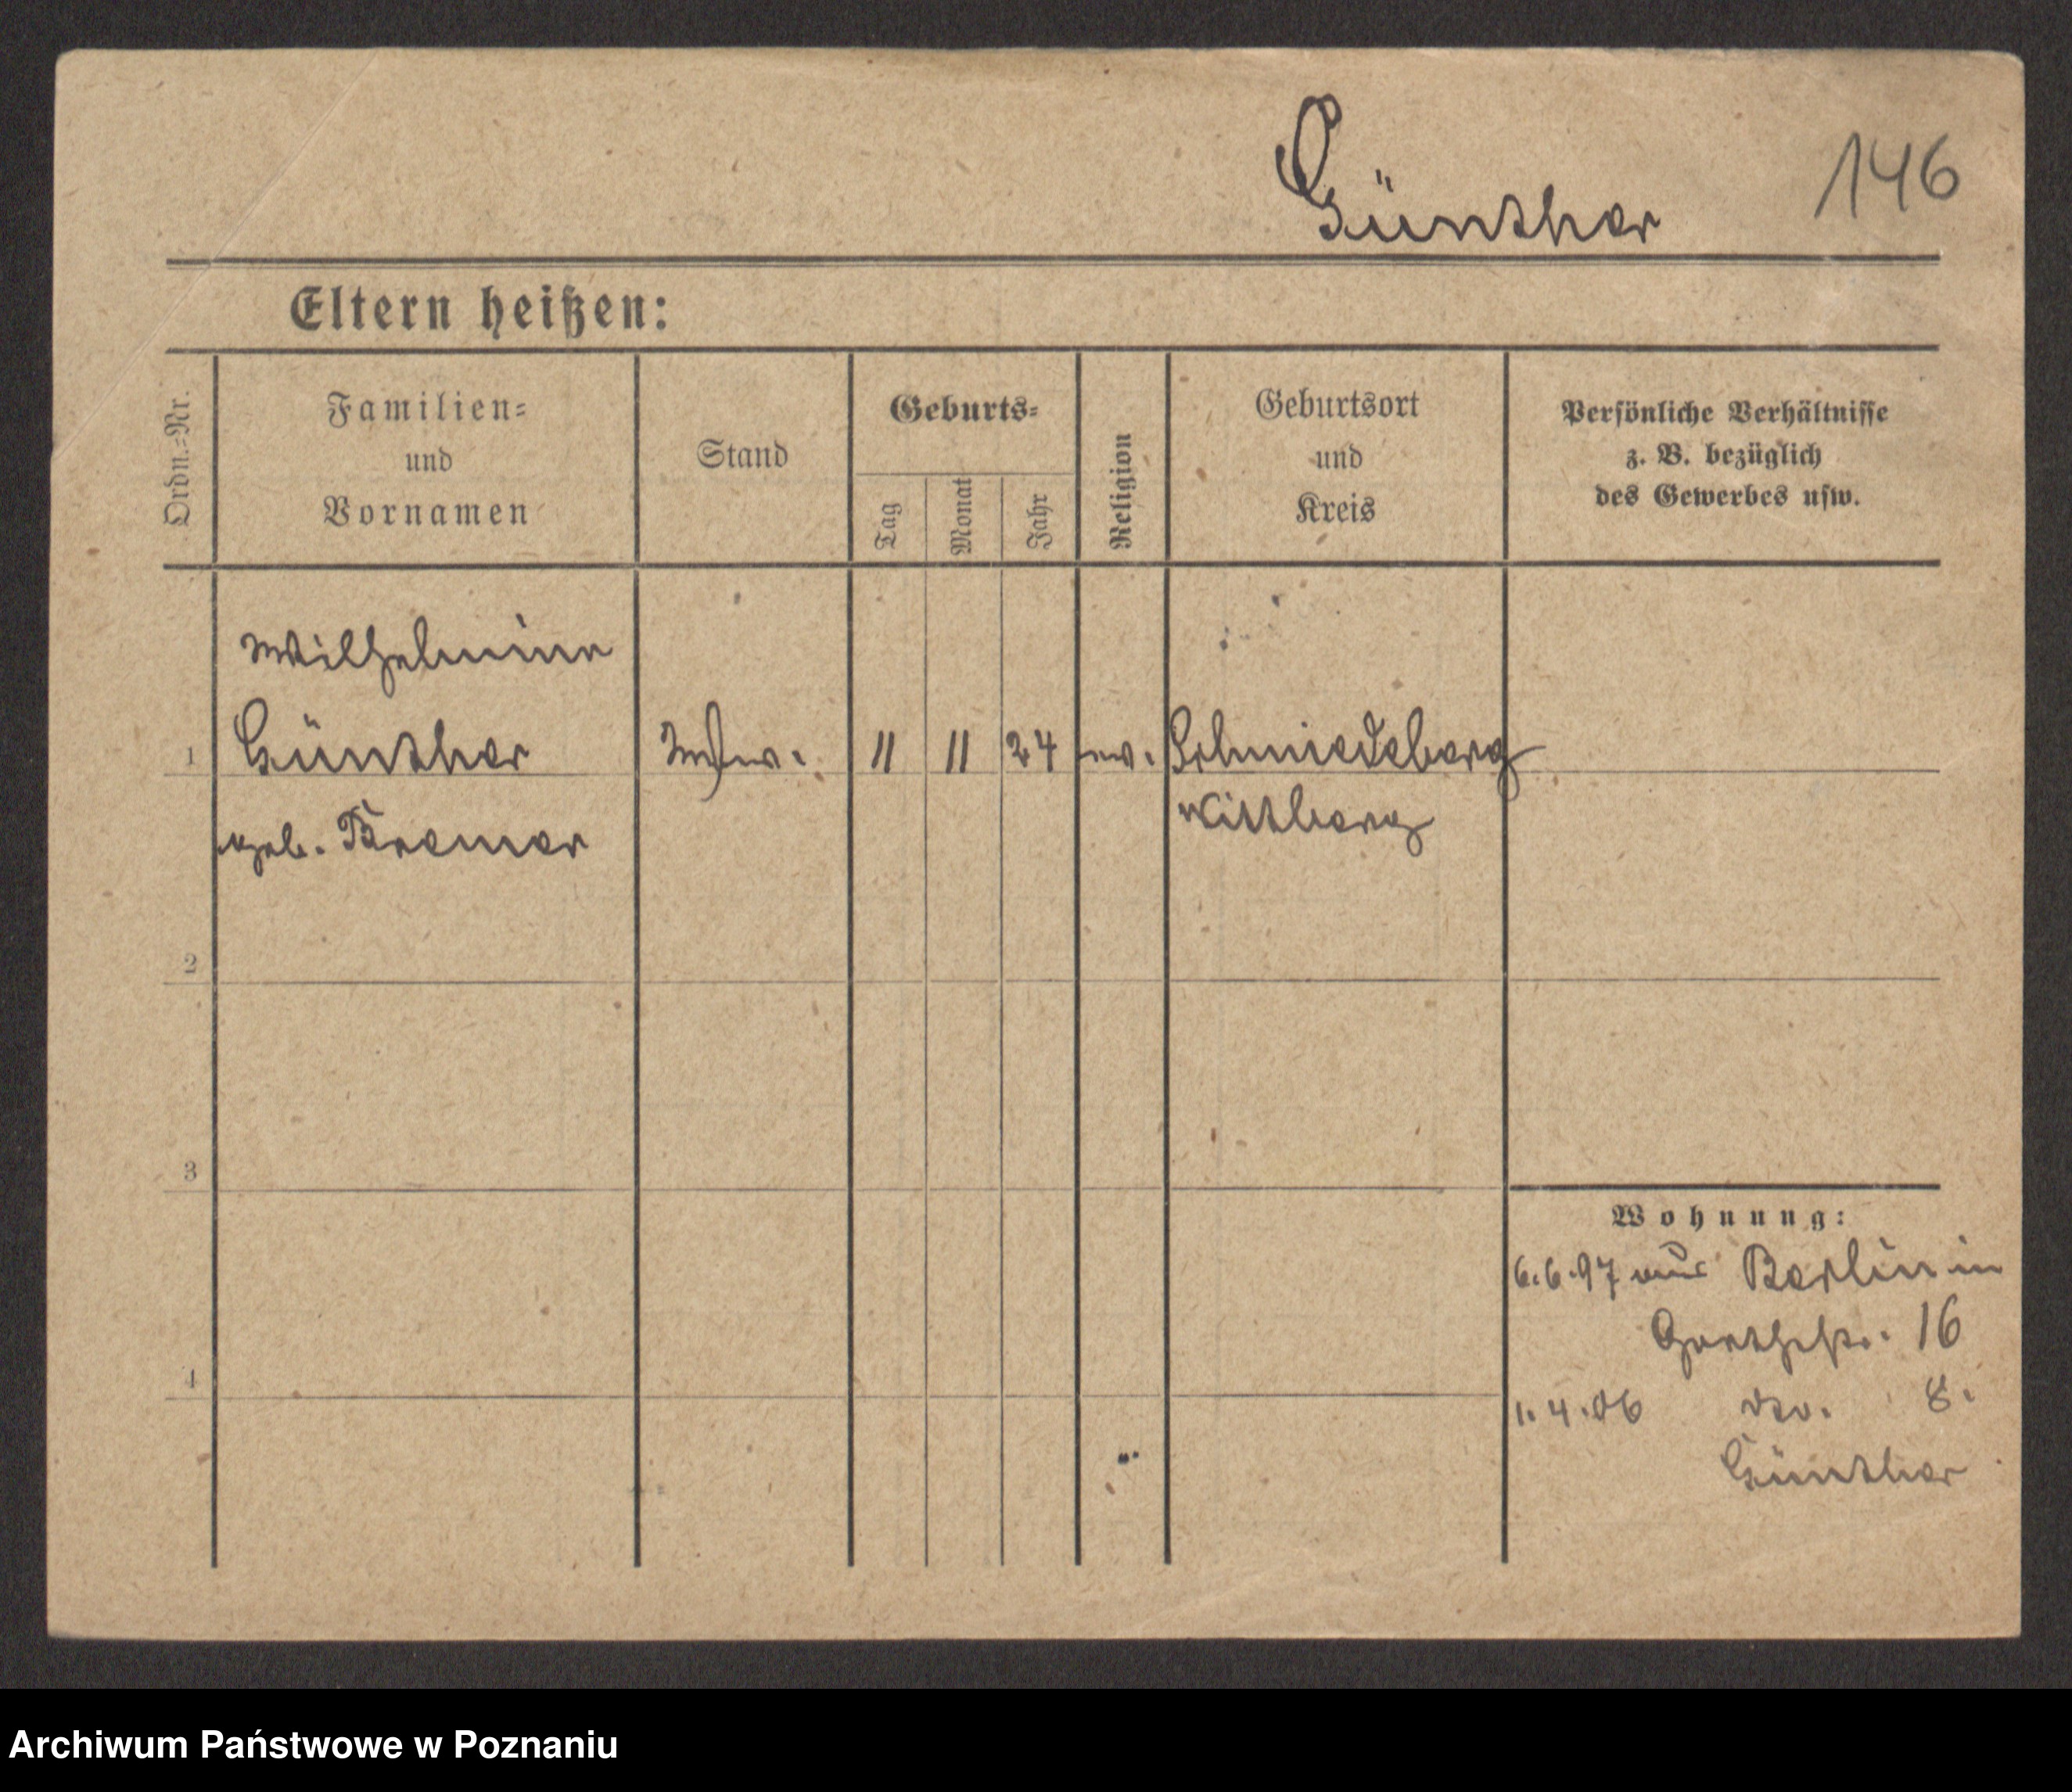 Günther
146
Eltern heißen:
Ordn.-Nr.
Familien-
und
Vornamen
Stand
Geburts-
Tag
Monat
Jahr
Religion
Geburtsort
und
Kreis
Persönliche Verhältnisse
z. B. bezüglich
des Gewerbes usw.
Wilhelmine
1 Günther 11 11 24 ev. Schmiedeberg
geb. Bremer Wittberg
2
3
Wohnung:
6.6.97 aus Berlin in
Goethestr. 16
4
1.4.06 do. 8.
Günther
Archiwum Państwowe w Poznaniu